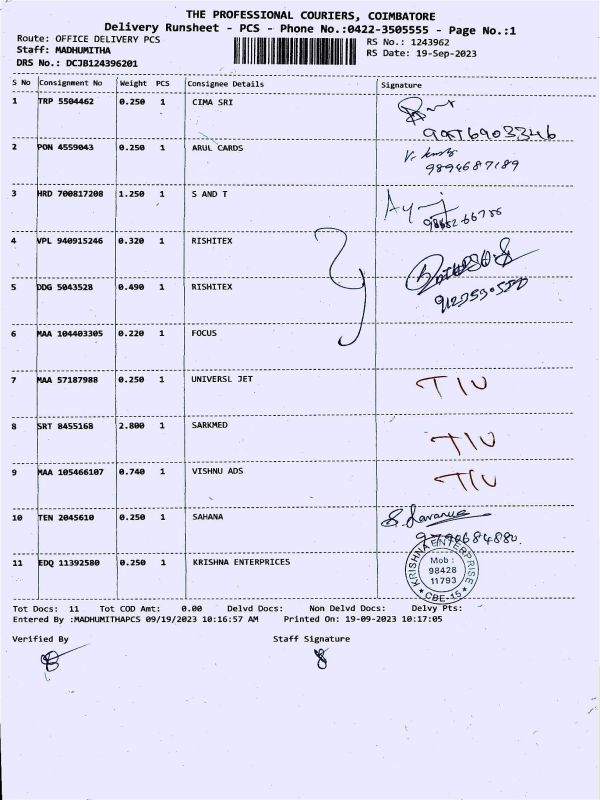 THE PROFESSIONAL COURIERS, COIMBATORE
Delivery Runsheet - PCS - Phone No.:0422-3505555 - Page No.:1
Route: OFFICE DELIVERY PCS
RS No.: 1243962
Staff: MADHUMITHA
RS Date: 19-Sep-2023
DRS No.: DCJB124396201
S No Consignment No Weight PCS Consignee Details Signature
1 TRP 5504462 0.250 1 CIMA SRI
2 PON 4559043 0.250 1 ARUL CARDS
9894687189
3 HRD 700817208 1.250 1 S AND T
4 VPL 940915246 0.320 1 RISHITEX
5 DDG 5043528 0.490 1 RISHITEX
6 MAA 104403305 0.220 1 FOCUS
7 MAA 57187988 0.250 1 UNIVERSL JET TIU
8 SRT 8455168 2.800 1 SARKMED TIU
9 MAA 105466107 0.740 1 VISHNU ADS TIU
10 TEN 2045610 0.250 1 SAHANA S. Lavanya
11 EDQ 11392580 0.250 1 KRISHNA ENTERPRICES
KRISHNA ENTERPRISE
Mob :
98428
11793
* CBE-15 *
Tot Docs: 11 Tot COD Amt: 0.00 Delvd Docs: Non Delvd Docs: Delvy Pts:
Entered By :MADHUMITHAPCS 09/19/2023 10:16:57 AM Printed On: 19-09-2023 10:17:05
Verified By Staff Signature